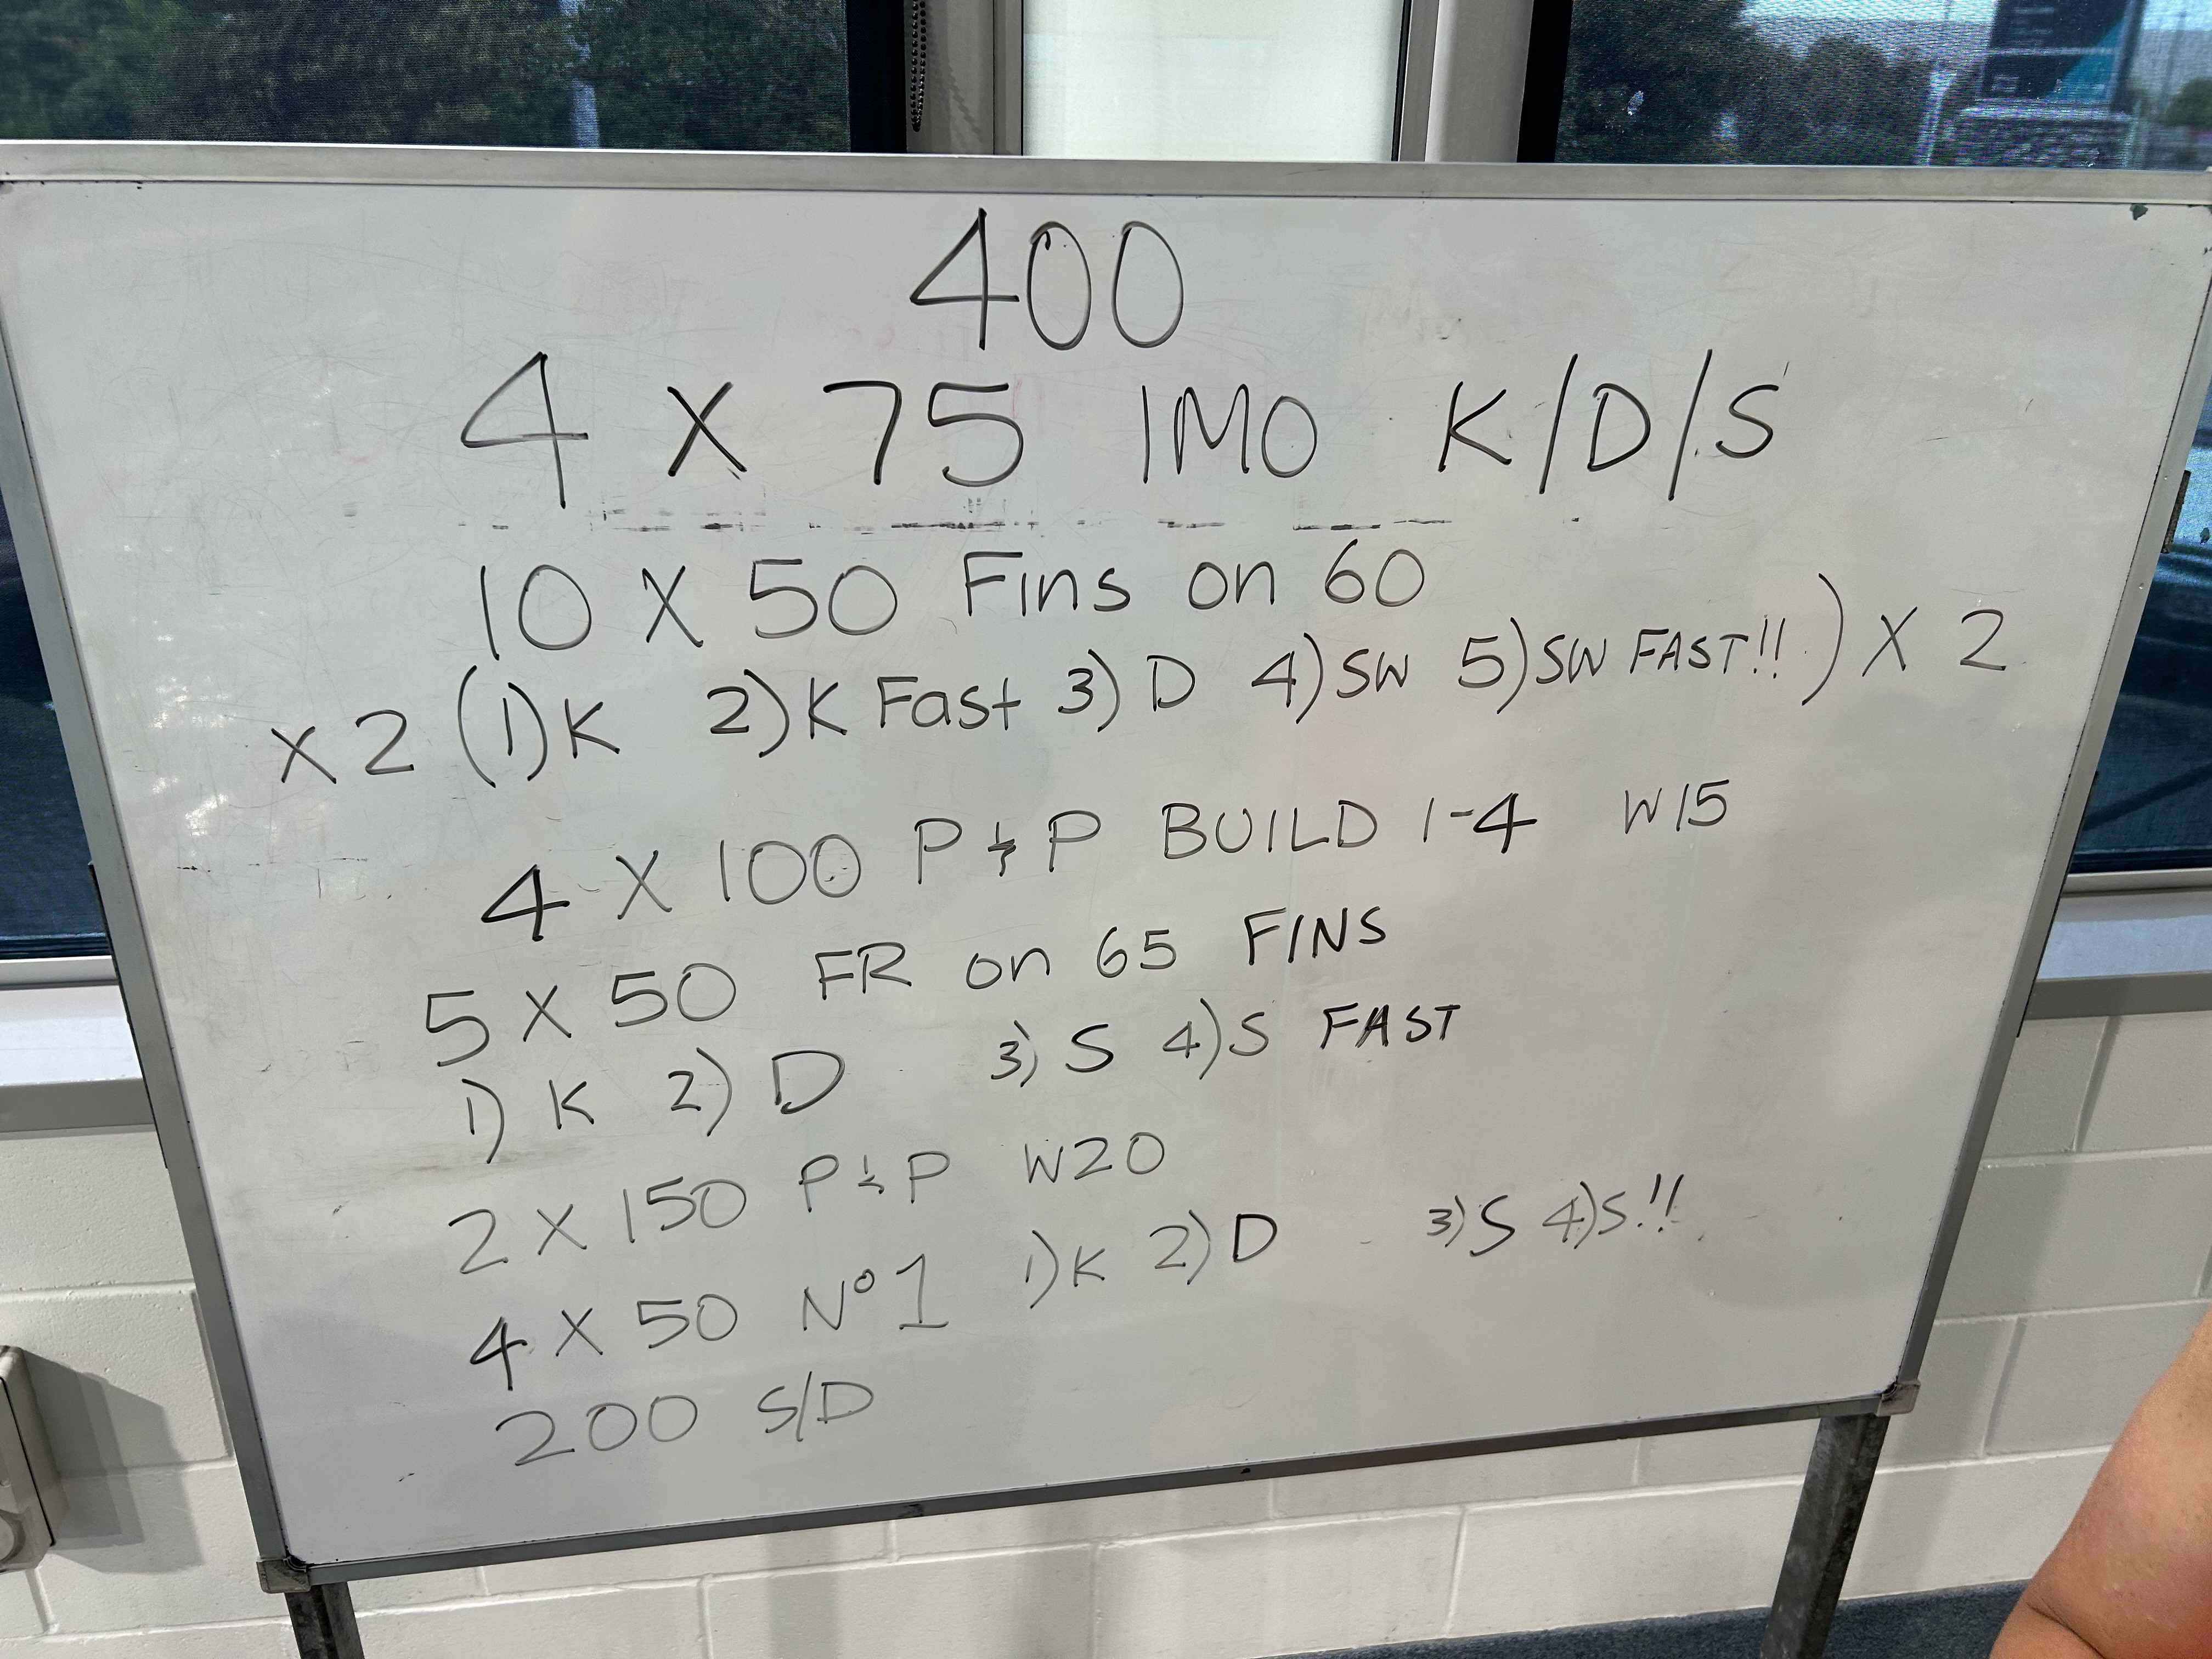 400
4 X 75 IMO K/D/S
10 X 50 Fins on 60
X 2 (1) K 2) K Fast 3) D 4) SW 5) SW FAST!! ) X 2
4 X 100 P & P BUILD 1-4 W15
5 X 50 FR on 65 FINS
1) K 2) D 3) S 4) S FAST
2 X 150 P & P W20
4 X 50 Nº1 1) K 2) D 3) S 4) S!!
200 S/D